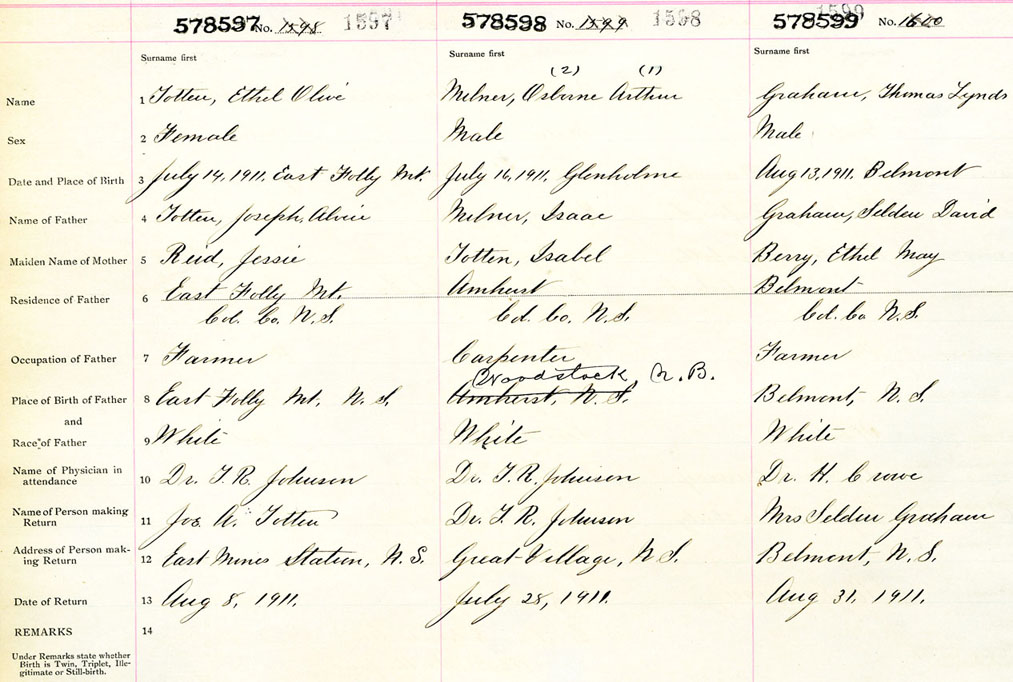 578597 No. 1598 1597 578598 No. 1599 1598 578599 1599 No. 1600
Surname first Surname first Surname first
(2) (1)
Name 1 Totten, Ethel Olive Milner, Osborne Arthur Graham, Thomas Lynds
Sex 2 Female Male Male
Date and Place of Birth 3 July 14, 1911. East Folly Mt. July 16, 1911. Glenholme Aug 13, 1911. Belmont
Name of Father 4 Totten, Joseph Alvin Milner, Isaac Graham, Selden David
Maiden Name of Mother 5 Reid, Jessie Totten, Isabel Berry, Ethel May
Residence of Father 6 East Folly Mt. Amherst Belmont
Col. Co. N.S. Col. Co. N.S. Col. Co N.S.
Occupation of Father 7 Farmer Carpenter Farmer
Woodstock, N.B.
Place of Birth of Father 8 East Folly Mt, N.S. Amherst, N.S. Belmont, N.S.
and
Race of Father 9 White White White
Name of Physician in
attendance 10 Dr. T.R. Johnson Dr. T.R. Johnson Dr. H. Crowe
Name of Person making
Return 11 Jos. A. Totten Dr. T.R. Johnson Mrs Selden Graham
Address of Person mak-
ing Return 12 East Mines Station, N.S. Great Village, N.S. Belmont, N.S.
Date of Return 13 Aug 8, 1911. July 28, 1911. Aug 31, 1911.
REMARKS 14
Under Remarks state whether
Birth is Twin, Triplet, Ille-
gitimate or Still-birth.